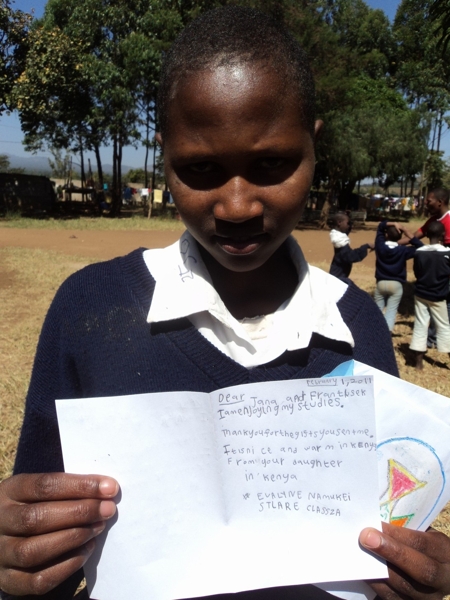 Dear Jana and Frantisek
Iamenjoying my studies.
Thankyouforthegiftsyousentme.
Itisni ce and warm in keny
From: your daughter
in: kenya
EVALYNE NAMUKEI
STLARE CLASS2A